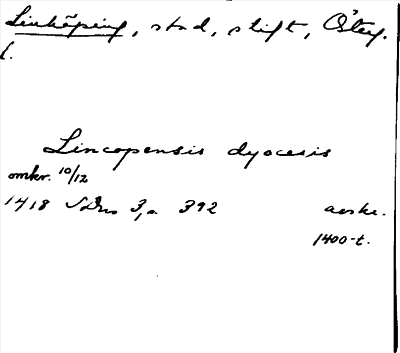 Linköping, stad, stift, Österg.
l.
Lincopensis dyocesis
omkr. 10/12
1418 SDns 3, s. 392 avskr.
1400-t.